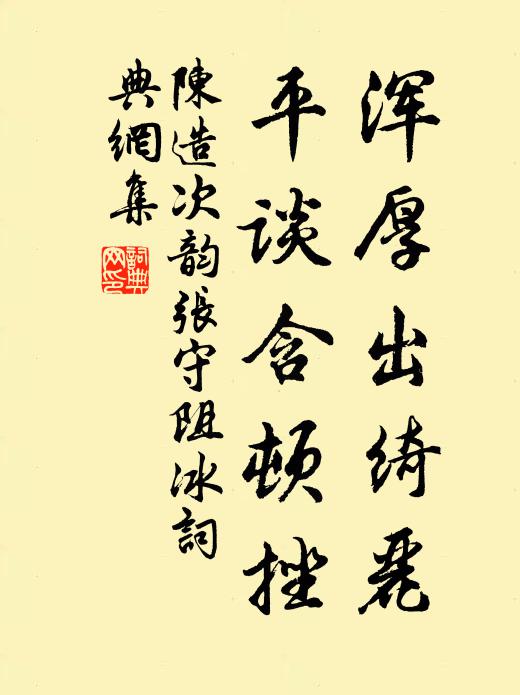 浑厚出绮丽
平谈含顿挫
陳造次韵張守阻冰詞
典網集
詞典網印